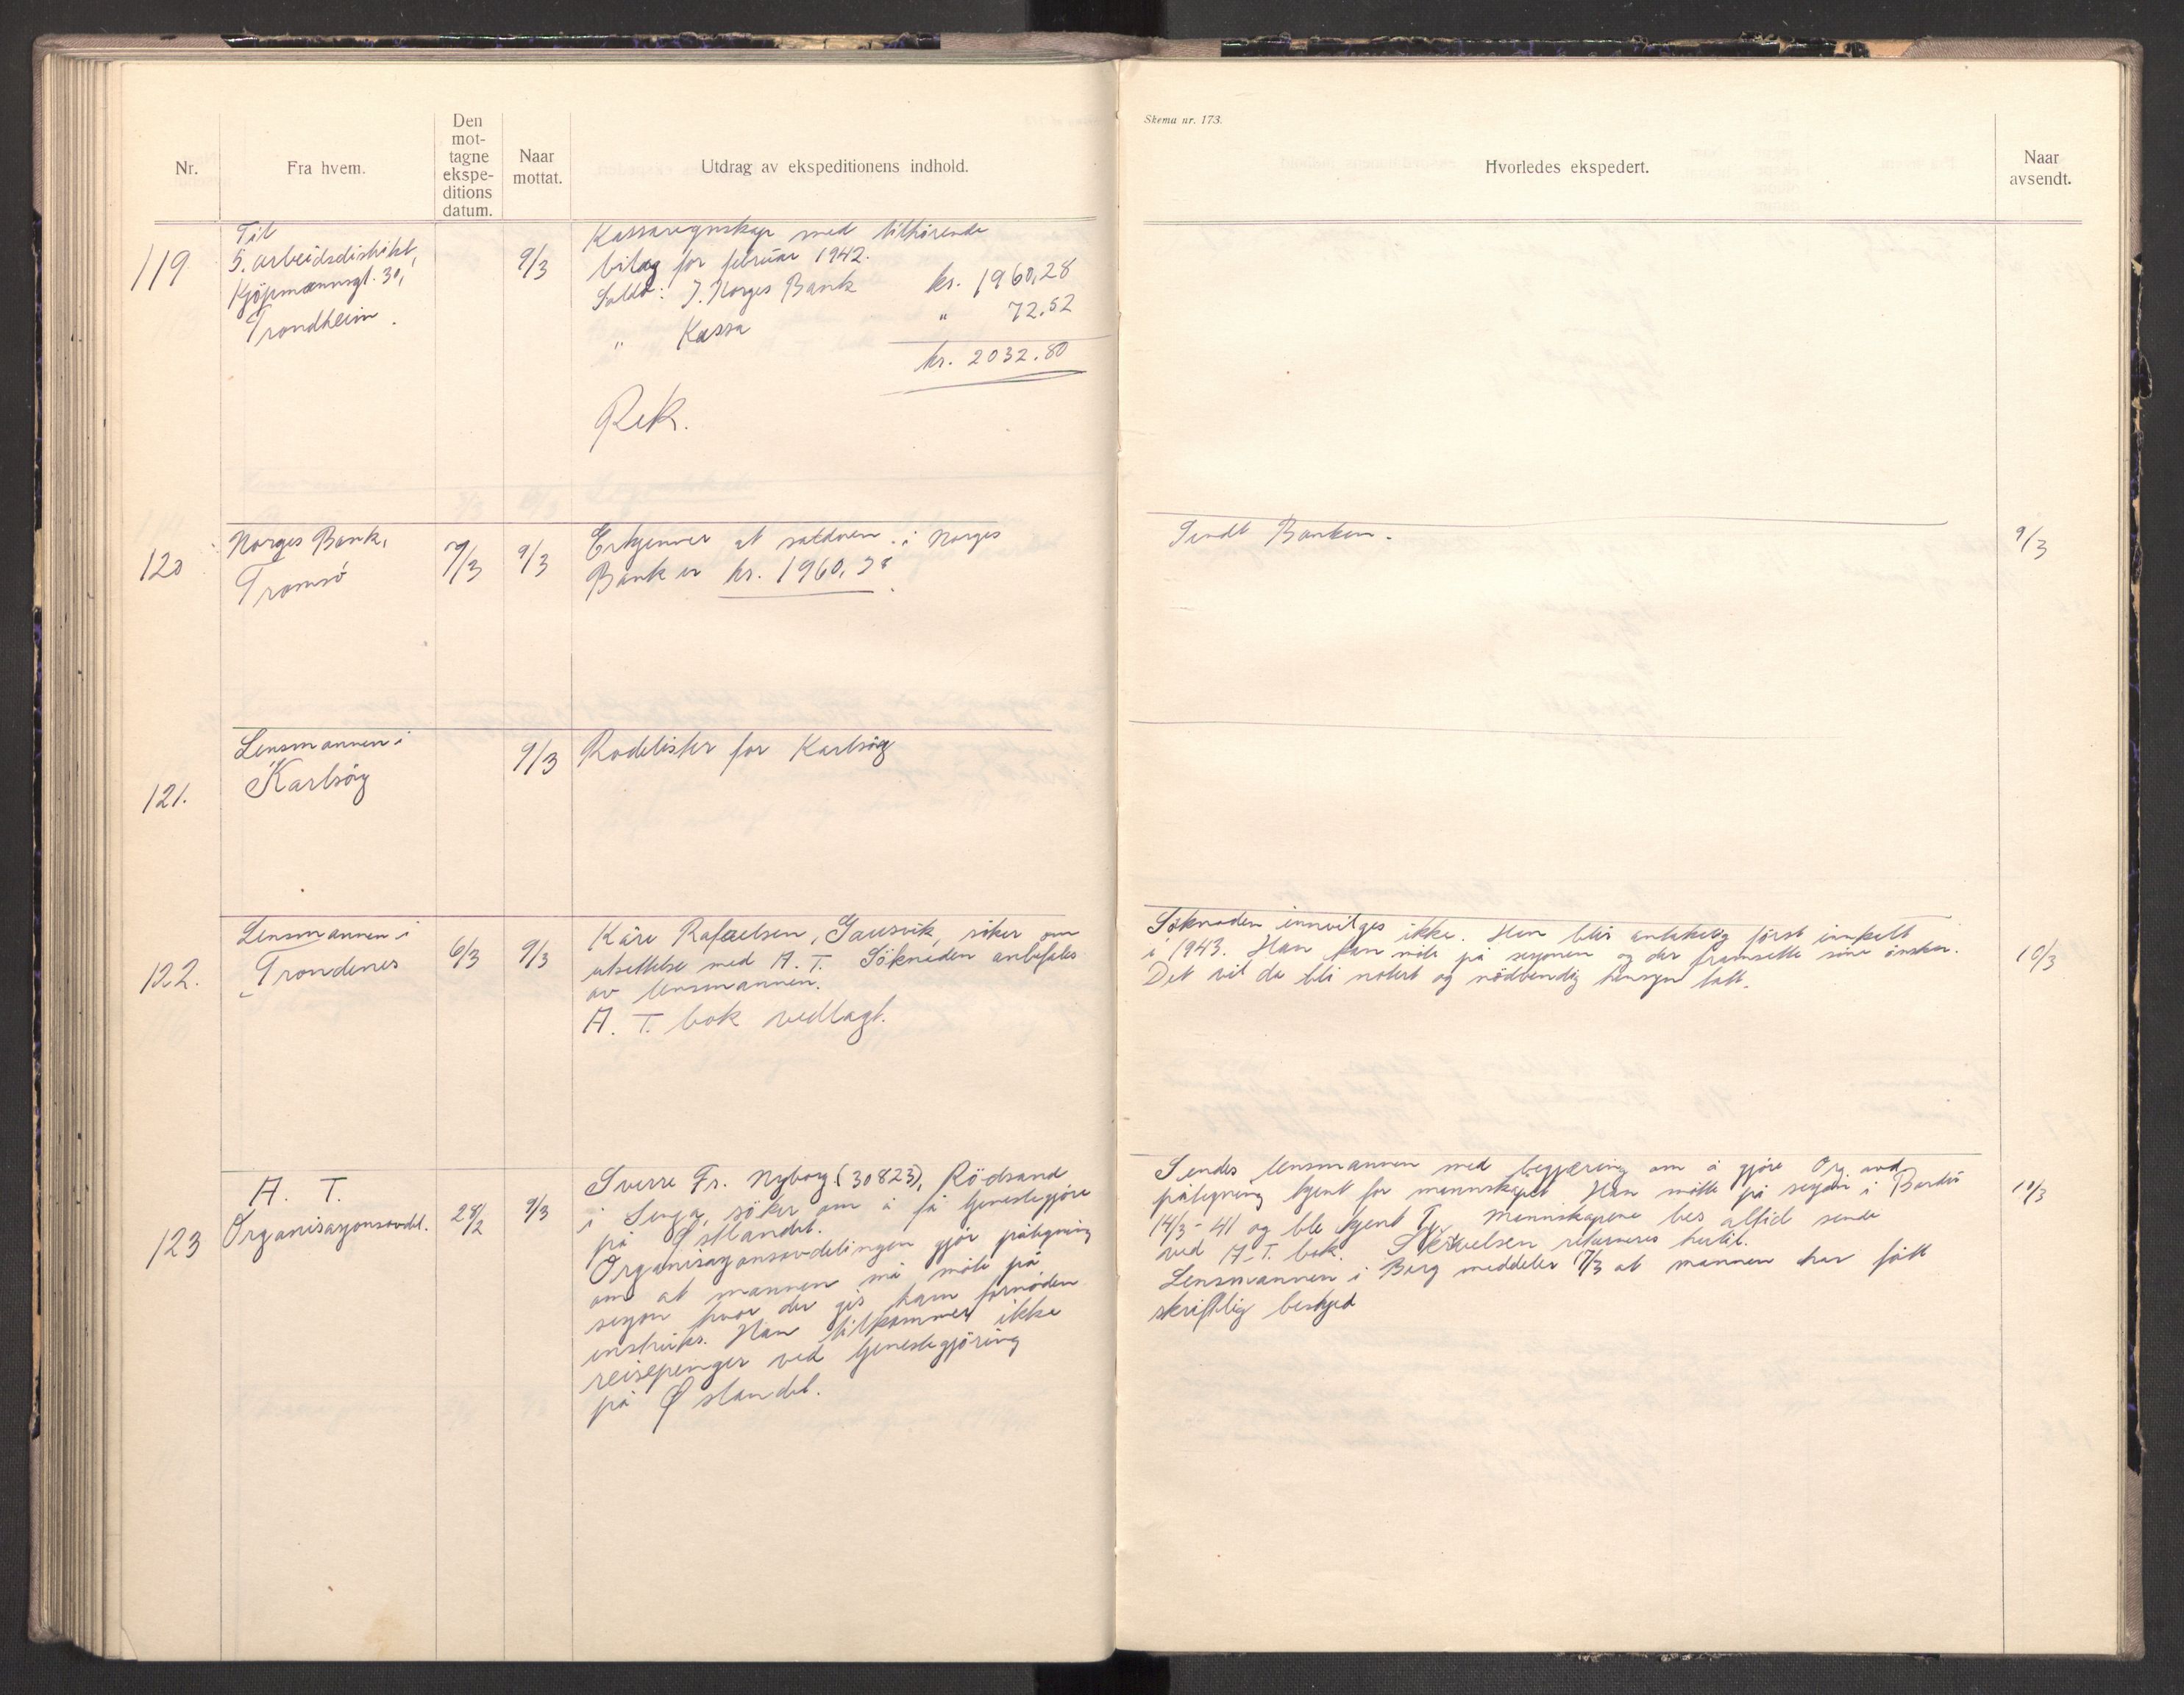 Skema nr. 173.
Nr.
Fra hvem.
Den
mot-
tagne
ekspe-
ditions
datum.
Naar
mottat.
Utdrag av ekspeditionens indhold.
Hvorledes ekspedert.
Naar
avsendt.
119
Til
5. arbeidsdistrikt,
Kjöpmannsgt. 30,
Trondheim.
9/3
Kassaregnskap med tilhörende
bilag for februar 1942.
Saldo: I. Norges Bank kr. 1960,28
" Kassa " 72.52
kr. 2032.80
Rek.
120
Norges Bank,
Tromsö
7/3
9/3
Erkjenner at saldoen i Norges
Bank er kr. 1960,28.
Sendt Banken.
9/3
121.
Lensmannen i
Karlsöy
9/3
Rodelister for Karlsöy
122.
Lensmannen i
Trondenes
6/3
9/3
Kåre Rafaelsen, Gausvik, söker om
utsettelse med A. T. Söknaden anbefales
av lensmannen.
A. T. bok vedlagt.
Söknaden innvilges ikke. Han blir antakelig först innkalt
i 1943. Han kan möte på sesjonen og der framsette sine önsker.
Det vil da bli notert og nödvendig hensyn tatt.
10/3
123
A. T.
Organisasjonsavdel.
28/2
9/3
Sverre Fr. Nyborg (30823), Rödsand
i Senja, söker om å få tjenestegjöre
på Østlandet.
Organisasjonsavdelingen gjör påtegning
om at mannen må möte på
sesjon hvor der gis ham fornöden
instruks. Han tilkommer ikke
reisepenger ved tjenestegjöring
på Østlandet.
Sendes lensmannen med begjæring om å gjöre Org. avd
påtegning kjent for mannskapet. Han mötte på sesjon i
14/3-41 og ble kjent Mannskapene bes alltid sende
ved A.T. bok. Skrivelsen returneres hertil.
Lensmannen i Berg meddeler 17/3 at mannen har fått
skriftlig beskjed
10/3